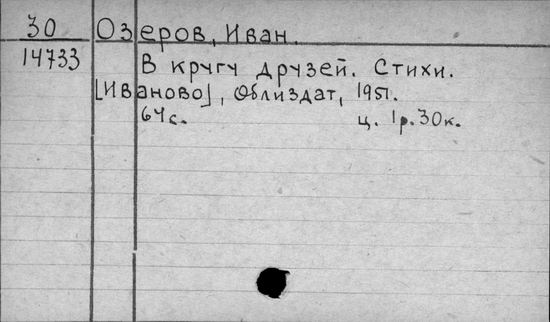 30 Озеров, Иван.
14733 В кругу друзей. Стихи.
[Иваново], Облиздат, 1951.
64с. ц. 1р.30к.